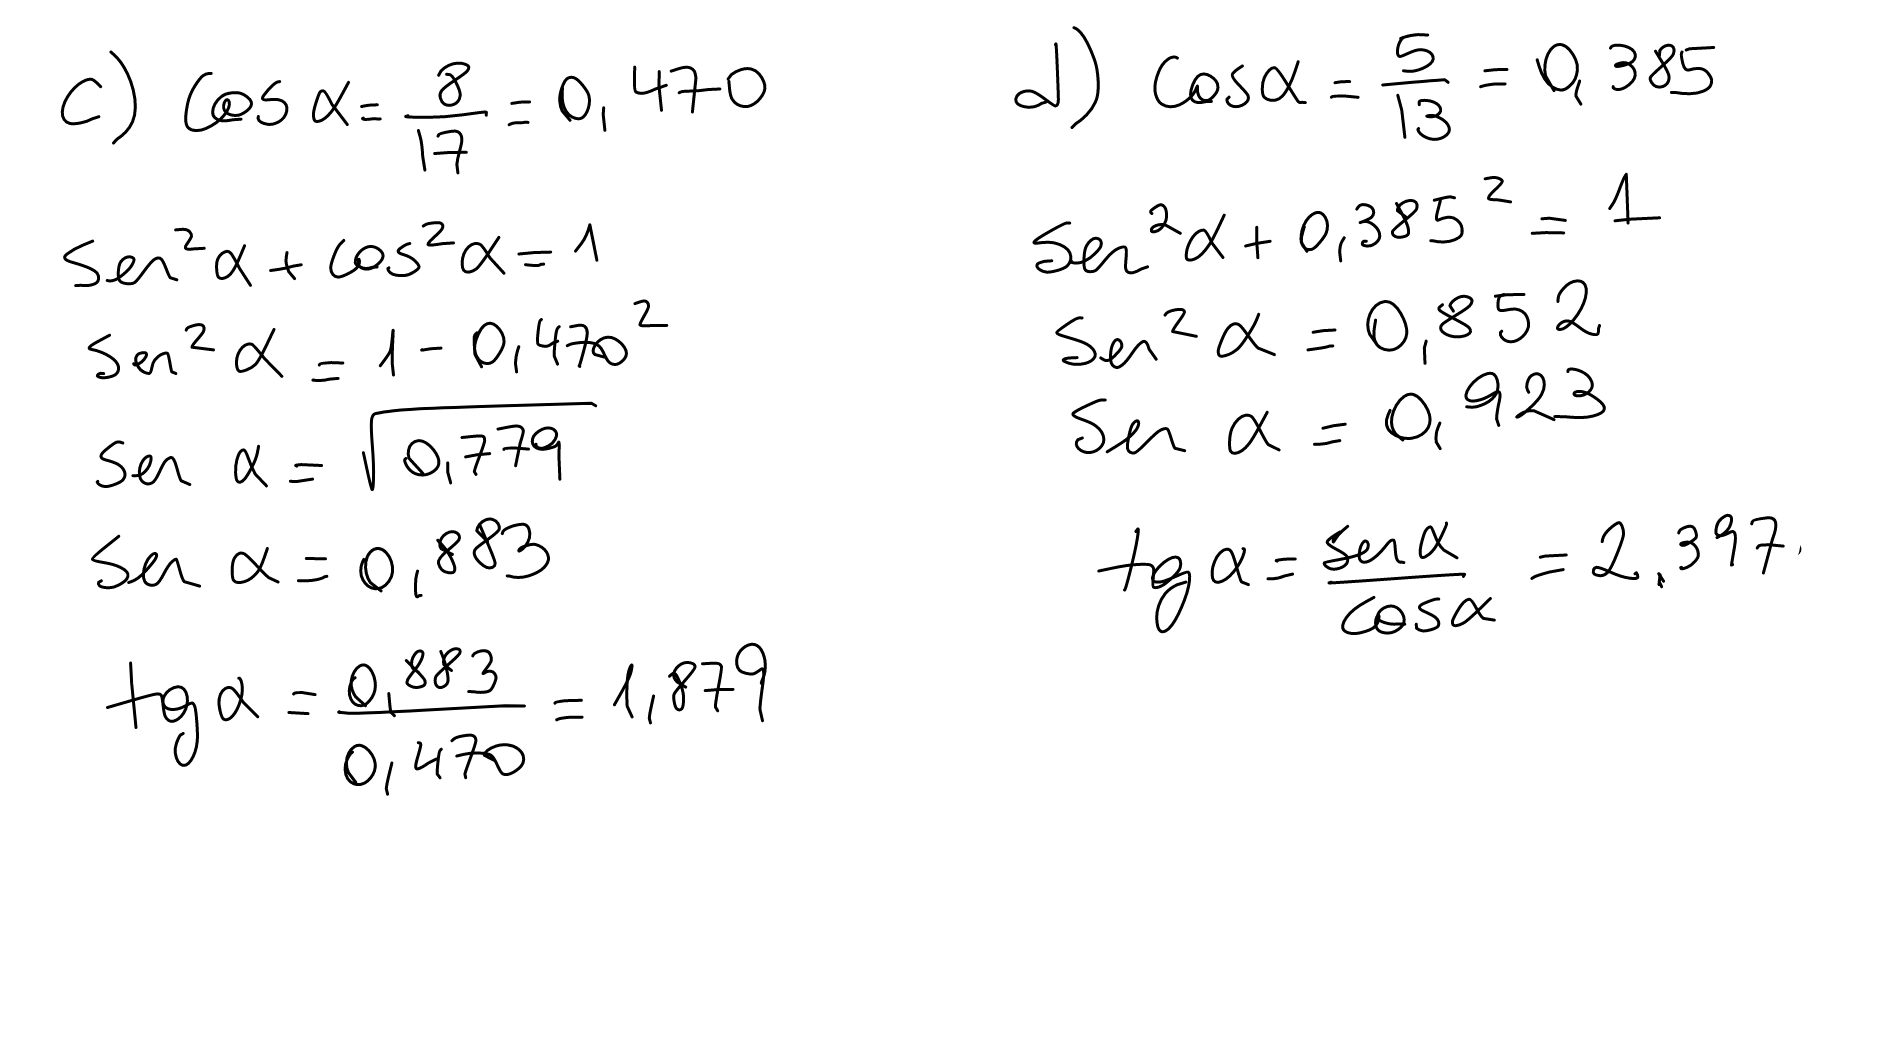 c) Cos α = 8/17 = 0,470
Sen²α + cos²α = 1
Sen²α = 1 - 0,470²
Sen α = √0,779
Sen α = 0,883
tg α = 0,883/0,470 = 1,879
d) Cosα = 5/13 = 0,385
Sen²α + 0,385² = 1
Sen²α = 0,852
Sen α = 0,923
tg α = senα/cosα = 2,397.